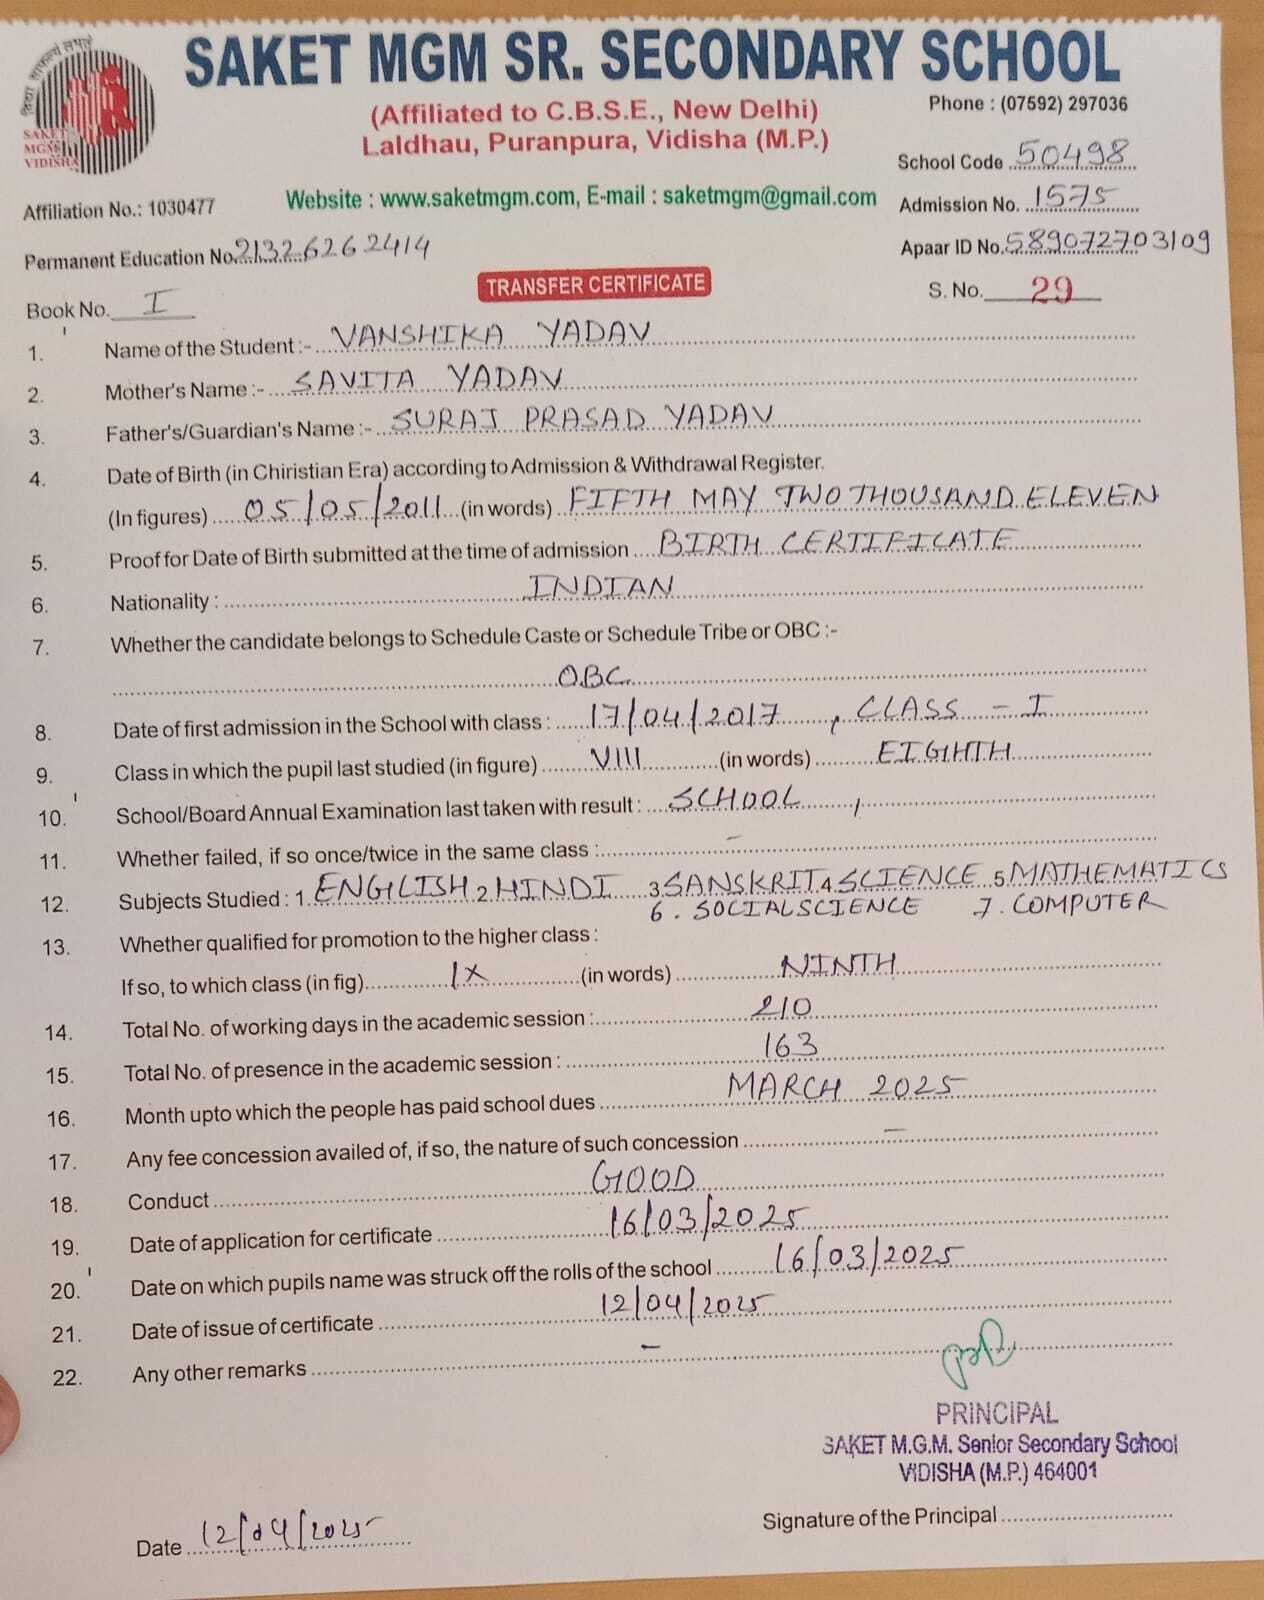 विद्या साफल्यं लभते
SAKET
MGM
VIDISHA
SAKET MGM SR. SECONDARY SCHOOL
(Affiliated to C.B.S.E., New Delhi)
Phone : (07592) 297036
Laldhau, Puranpura, Vidisha (M.P.)
School Code 50498
Affiliation No.: 1030477
Website : www.saketmgm.com, E-mail : saketmgm@gmail.com
Admission No. 1575
Permanent Education No. 21326262414
Apaar ID No. 589072703109
TRANSFER CERTIFICATE
Book No. I
S. No. 29
1. Name of the Student :- VANSHIKA YADAV
2. Mother's Name :- SAVITA YADAV
3. Father's/Guardian's Name :- SURAJ PRASAD YADAV
4. Date of Birth (in Chiristian Era) according to Admission & Withdrawal Register.
(In figures) 05/05/2011 (in words) FIFTH MAY TWO THOUSAND ELEVEN
5. Proof for Date of Birth submitted at the time of admission BIRTH CERTIFICATE
6. Nationality : INDIAN
7. Whether the candidate belongs to Schedule Caste or Schedule Tribe or OBC :-
OBC
8. Date of first admission in the School with class : 17/04/2017, CLASS - I
9. Class in which the pupil last studied (in figure) VIII (in words) EIGHTH
10. School/Board Annual Examination last taken with result : SCHOOL ,
11. Whether failed, if so once/twice in the same class : -
12. Subjects Studied : 1. ENGLISH 2. HINDI 3. SANSKRIT 4. SCIENCE 5. MATHEMATICS
6. SOCIAL SCIENCE 7. COMPUTER
13. Whether qualified for promotion to the higher class :
If so, to which class (in fig) IX (in words) NINTH
14. Total No. of working days in the academic session : 210
15. Total No. of presence in the academic session : 163
16. Month upto which the people has paid school dues MARCH 2025
17. Any fee concession availed of, if so, the nature of such concession -
18. Conduct GOOD
19. Date of application for certificate 16/03/2025
20. Date on which pupils name was struck off the rolls of the school 16/03/2025
21. Date of issue of certificate 12/04/2025
22. Any other remarks -
PRINCIPAL
SAKET M.G.M. Senior Secondary School
VIDISHA (M.P.) 464001
Signature of the Principal
Date 12/04/2025